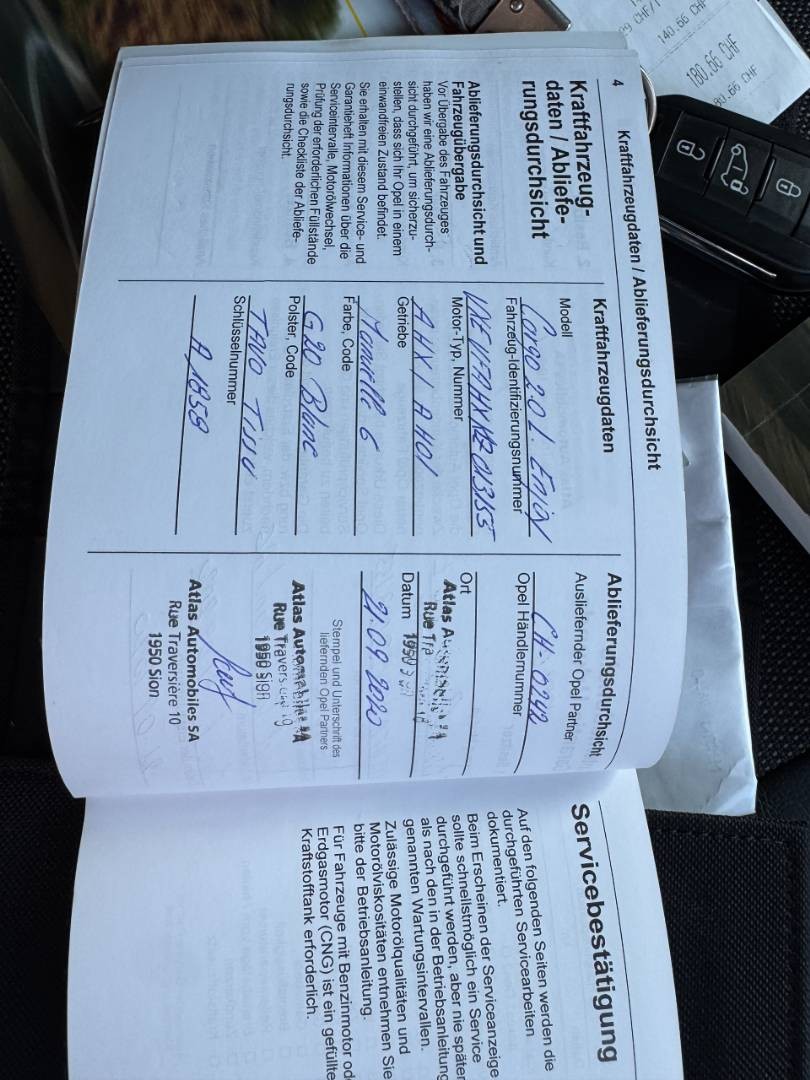 4
Kraftfahrzeugdaten / Ablieferungsdurchsicht
Kraftfahrzeug-
daten / Abliefe-
rungsdurchsicht
Ablieferungsdurchsicht und
Fahrzeugübergabe
Vor Übergabe des Fahrzeuges
haben wir eine Ablieferungsdurch-
sicht durchgeführt, um sicherzu-
stellen, dass sich Ihr Opel in einem
einwandfreien Zustand befindet.
Sie erhalten mit diesem Service- und
Garantieheft Informationen über die
Serviceintervalle, Motorölwechsel,
Prüfung der erforderlichen Füllstände
sowie die Checkliste der Abliefe-
rungsdurchsicht.
Kraftfahrzeugdaten
Modell
Fahrzeug-Identifizierungsnummer
Motor-Typ, Nummer
AHX1 AH01
Getriebe
Farbe, Code
G20 Blanc
Polster, Code
Tissu
Schlüsselnummer
A 1858
Ablieferungsdurchsicht
Ausliefernder Opel Partner
CH-0242
Opel Händlernummer
Ort
Atlas
Rue Tra
1950
Datum
21.09 2020
Stempel und Unterschrift des
liefernden Opel Partners
Atlas Automobiles SA
Rue Travers
1950 Sion
Atlas Automobiles SA
Rue Traversière 10
1950 Sion
Servicebestätigung
Auf den folgenden Seiten werden die
durchgeführten Servicearbeiten
dokumentiert.
Beim Erscheinen der Serviceanzeige
sollte schnellstmöglich ein Service
durchgeführt werden, aber nie später
als nach den in der Betriebsanleitung
genannten Wartungsintervallen.
Zulässige Motorölqualitäten und
Motorölviskositäten entnehmen Sie
bitte der Betriebsanleitung.
Für Fahrzeuge mit Benzinmotor od
Erdgasmotor (CNG) ist ein gefüllte
Kraftstofftank erforderlich.
140.66 CHF
180.66 CHF
80.66 CHF